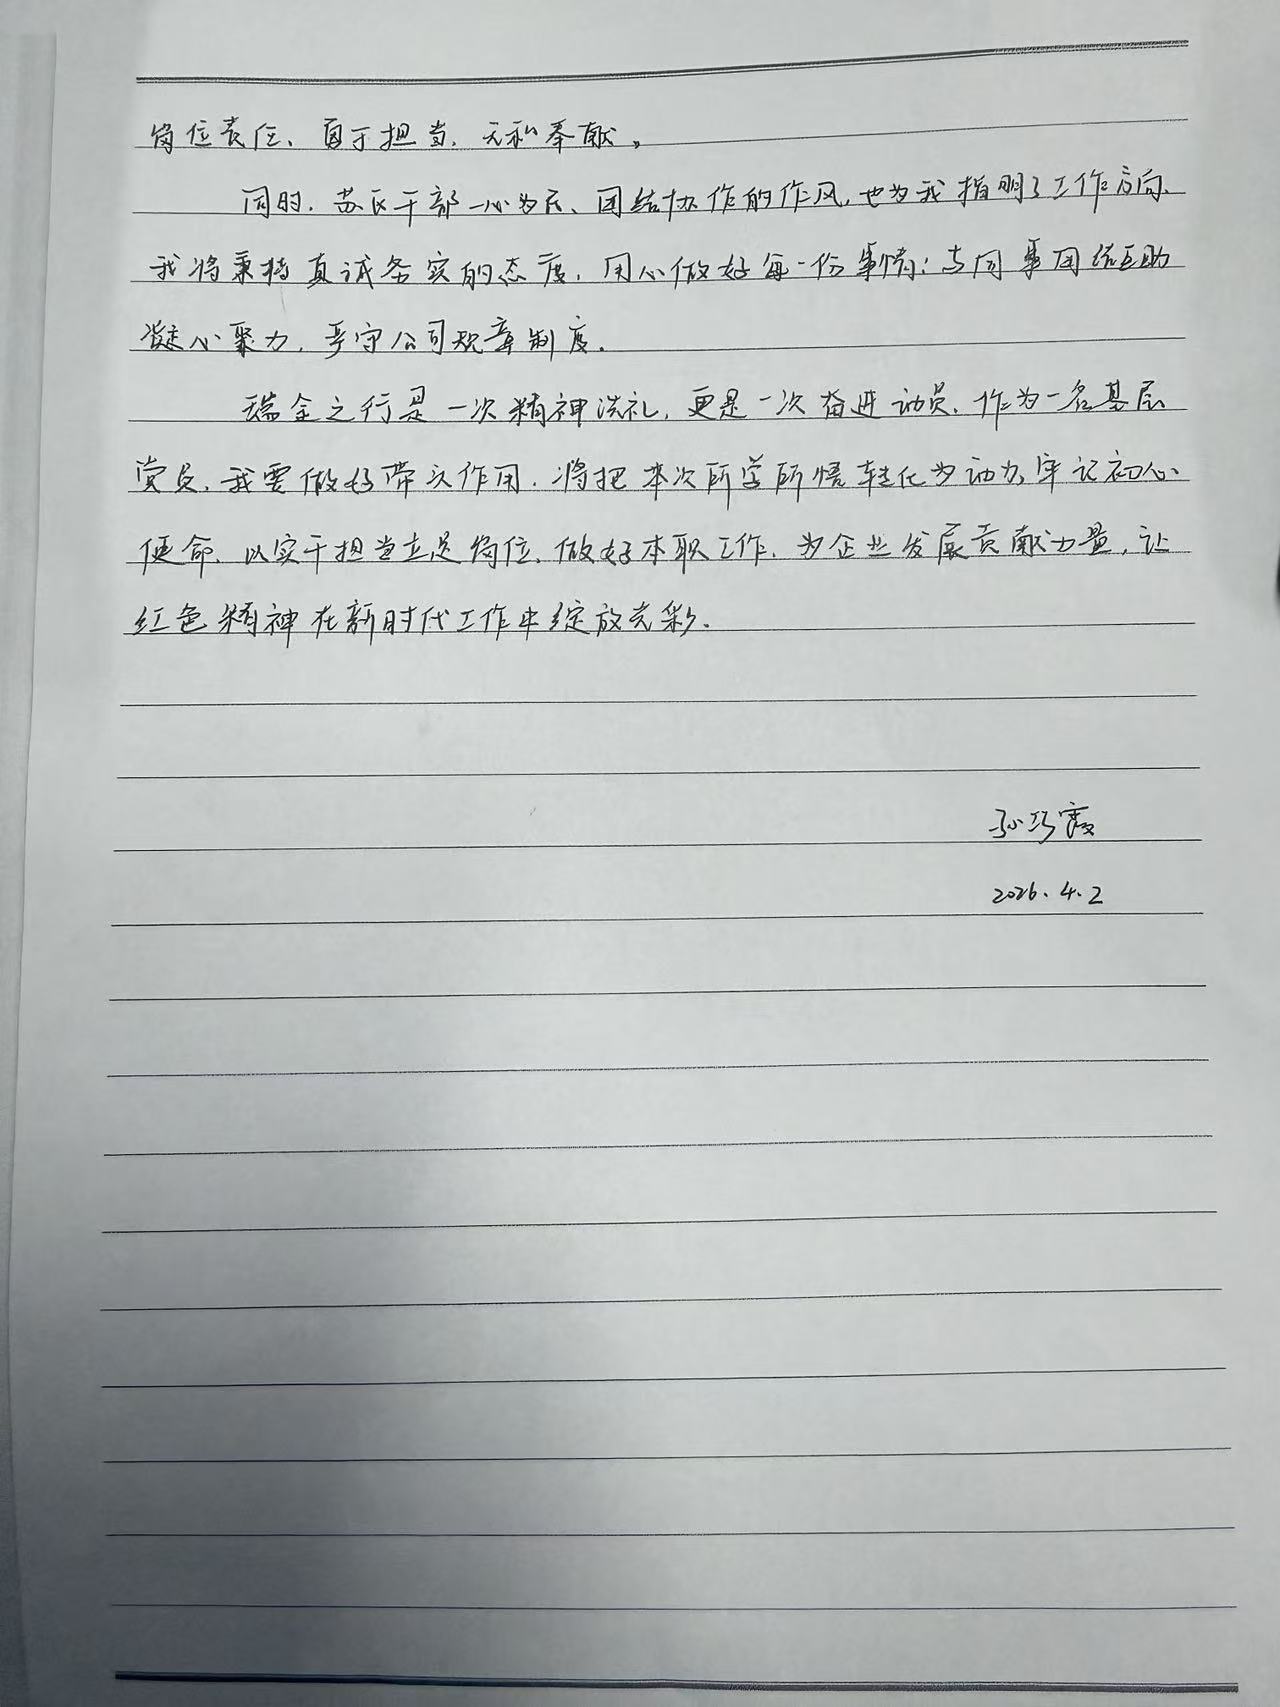 岗位责任、勇于担当、无私奉献。
同时，苏区干部一心为民、团结协作的作风，也为我指明了工作方向、
我将秉持真诚务实的态度，用心做好每一份事情；与同事团结互助
凝心聚力，严守公司规章制度.
瑞金之行是一次精神洗礼，更是一次奋进动员、作为一名基层
党员，我要做好带头作用，将把本次所学所悟转化为动力，牢记初心
使命、以实干担当立足岗位、做好本职工作，为企业发展贡献力量，让
红色精神在新时代工作中绽放光彩.
孙巧霞
2026.4.2